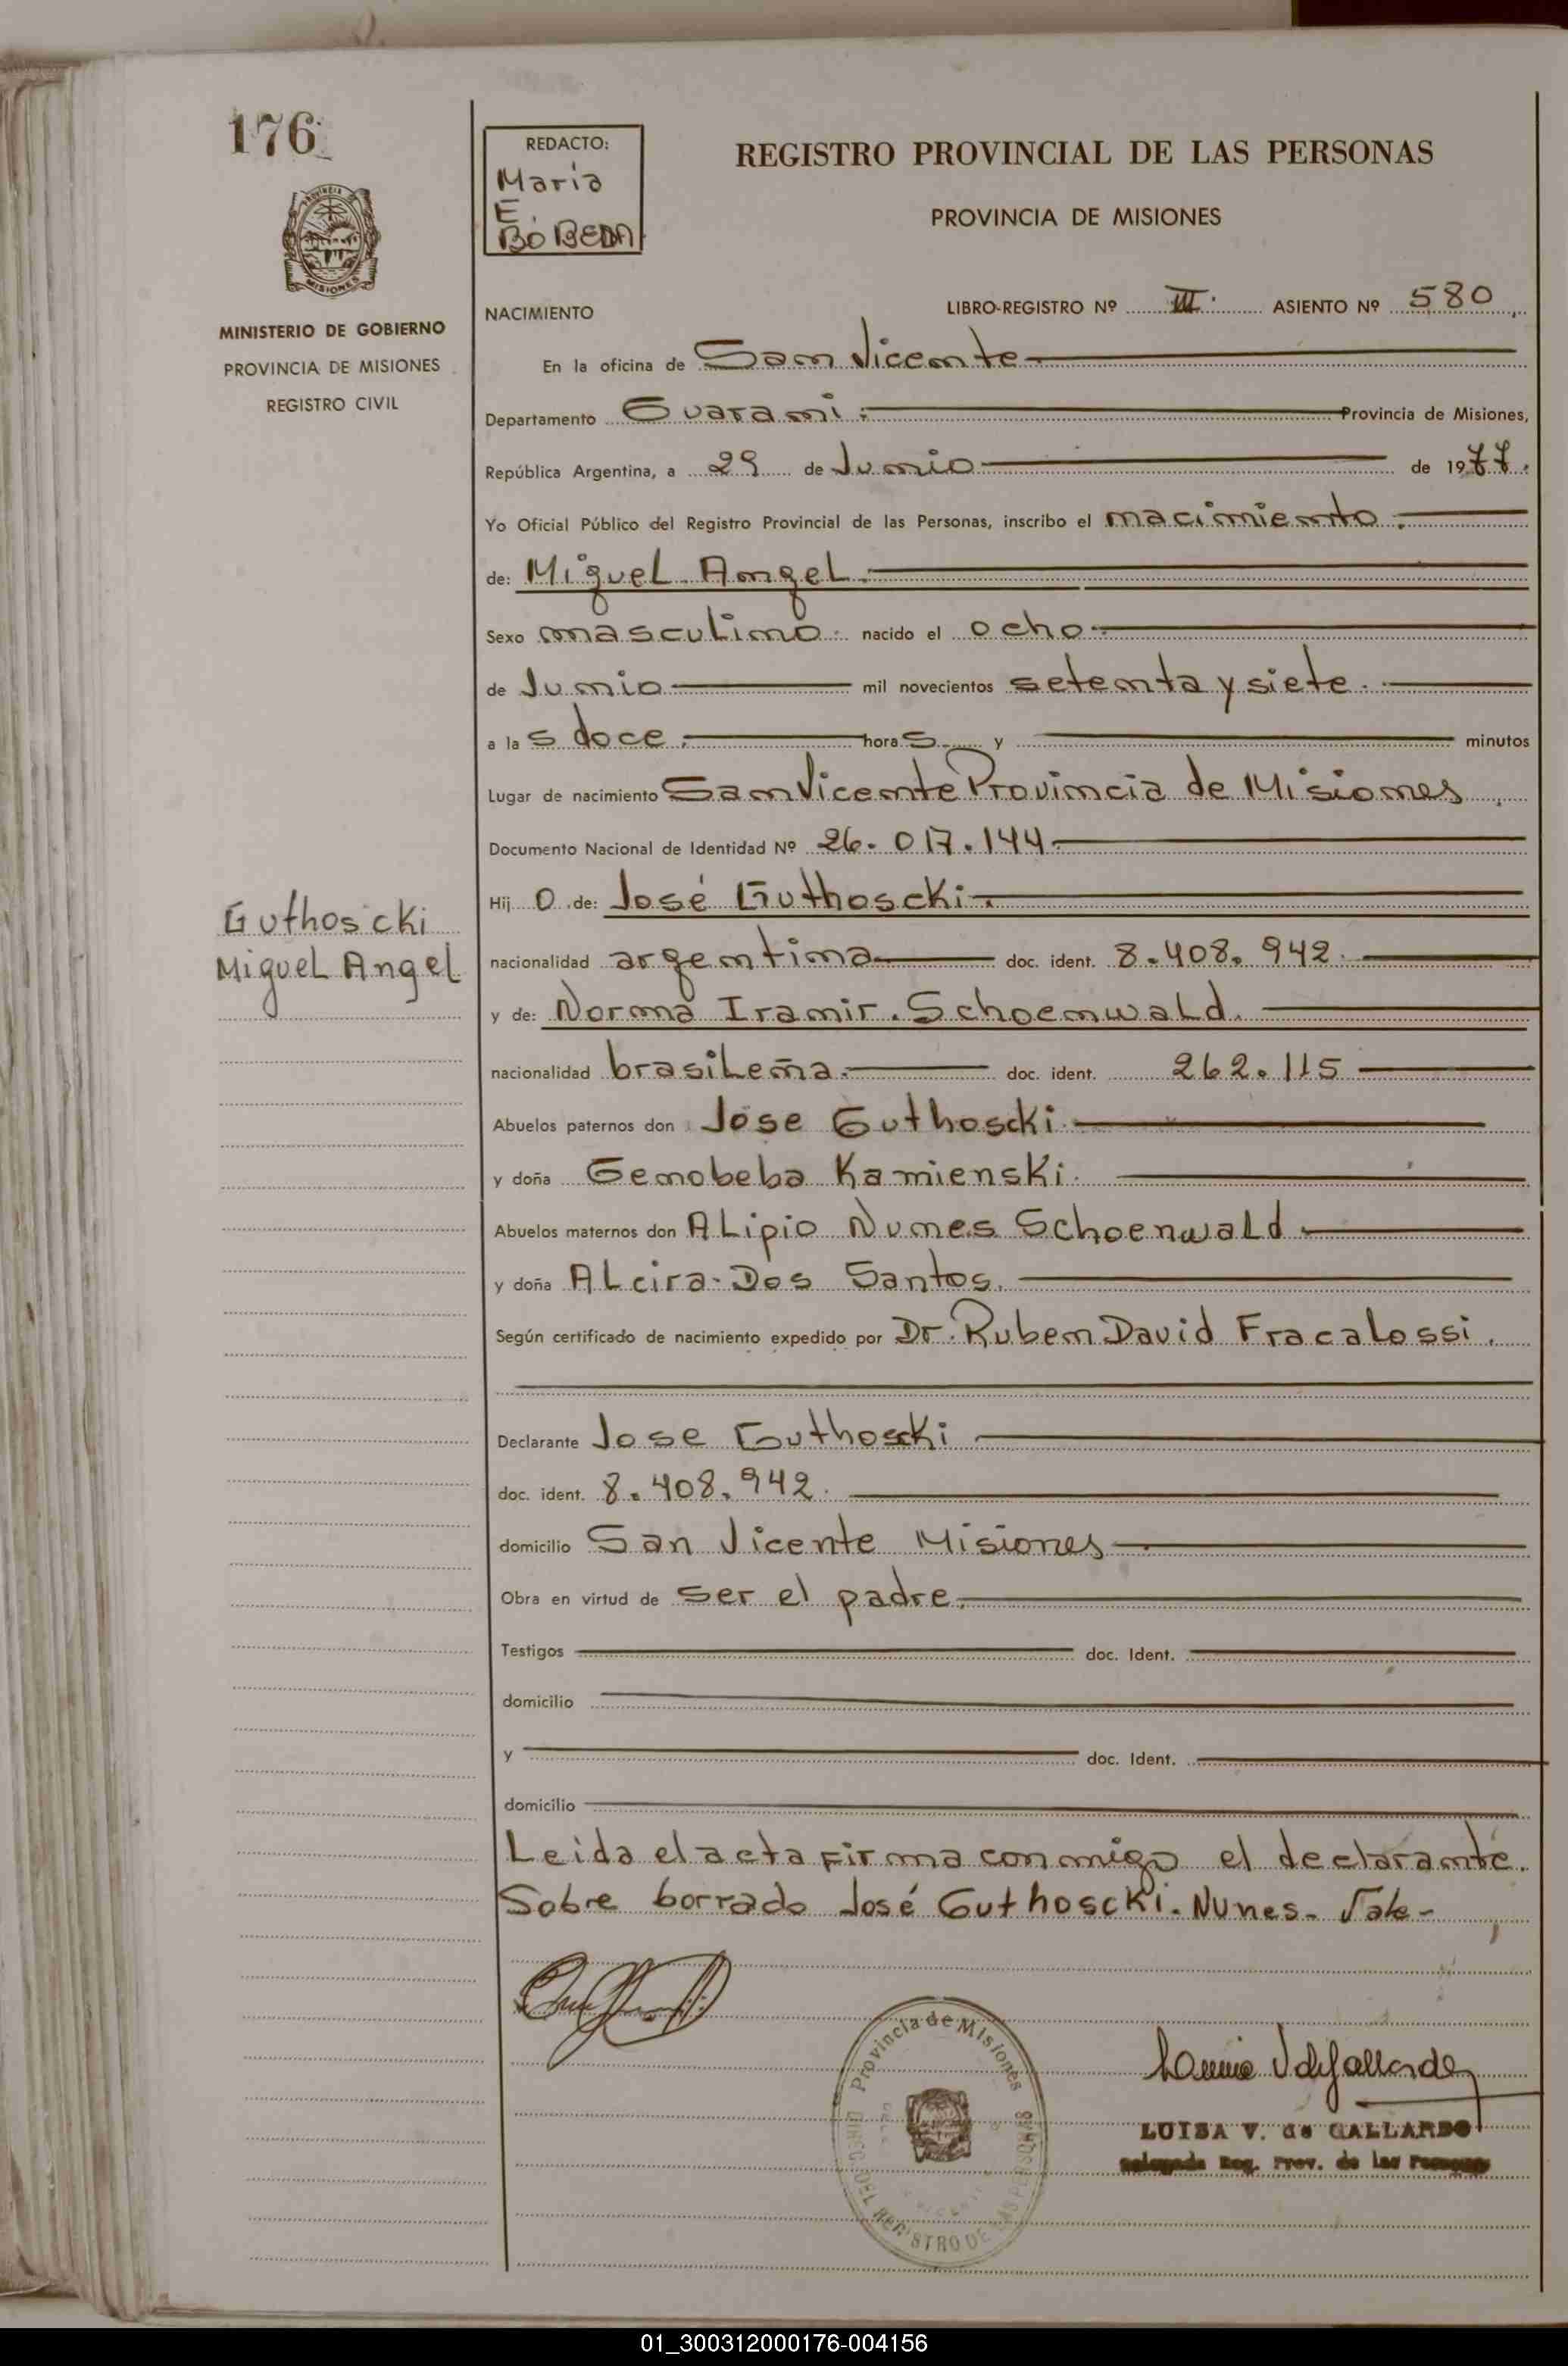 176
REDACTO:
Maria
E.
BÓBEDA
REGISTRO PROVINCIAL DE LAS PERSONAS
PROVINCIA DE MISIONES
MISIONES
MINISTERIO DE GOBIERNO
PROVINCIA DE MISIONES
REGISTRO CIVIL
NACIMIENTO
LIBRO-REGISTRO Nº III. ASIENTO Nº 580
En la oficina de San Vicente
Departamento Guarani. Provincia de Misiones,
República Argentina, a 29 de Junio de 1977.
Yo Oficial Público del Registro Provincial de las Personas, inscribo el nacimiento.
de: Miguel Angel.
Sexo masculino. nacido el ocho.
de Junio mil novecientos setenta y siete.
a las doce. horas y minutos
Lugar de nacimiento San Vicente Provincia de Misiones
Documento Nacional de Identidad Nº 26.017.144.
Hijo de: José Guthoscki.
Guthoscki
Miguel Angel
nacionalidad argentina doc. ident. 8.408.942.
y de: Norma Iramir. Schoenwald.
nacionalidad brasileña. doc. ident. 262.115
Abuelos paternos don Jose Guthoscki.
y doña Genobeba Kamienski.
Abuelos maternos don Alipio Nunes Schoenwald.
y doña Alcira Dos Santos.
Según certificado de nacimiento expedido por Dr. Ruben David Fracalossi.
Declarante Jose Guthoscki
doc. ident. 8.408.942.
domicilio San Vicente Misiones
Obra en virtud de ser el padre.
Testigos doc. Ident.
domicilio
y doc. Ident.
domicilio
Leida el acta firma conmigo el declarante.
Sobre borrado José Guthoscki. Nunes. Vale-
Provincia de Misiones
DIREC. DEL REGISTRO DE LAS PERSONAS
LUISA V. de GALLARDO
Delegada Reg. Prov. de las Personas
01_300312000176-004156